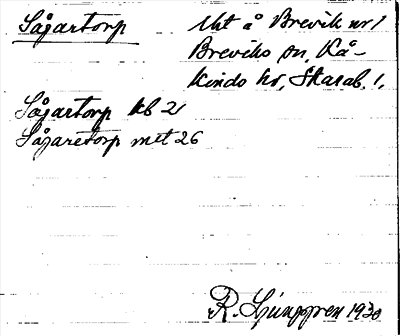 Sågartorp
Uht å Brevik nr 1
Breviks sn, Kå-
kinds hd, Skarab. l.
Sågartorp kb 21
Sågaretorp mtl 26
R. Ljunggren 1930